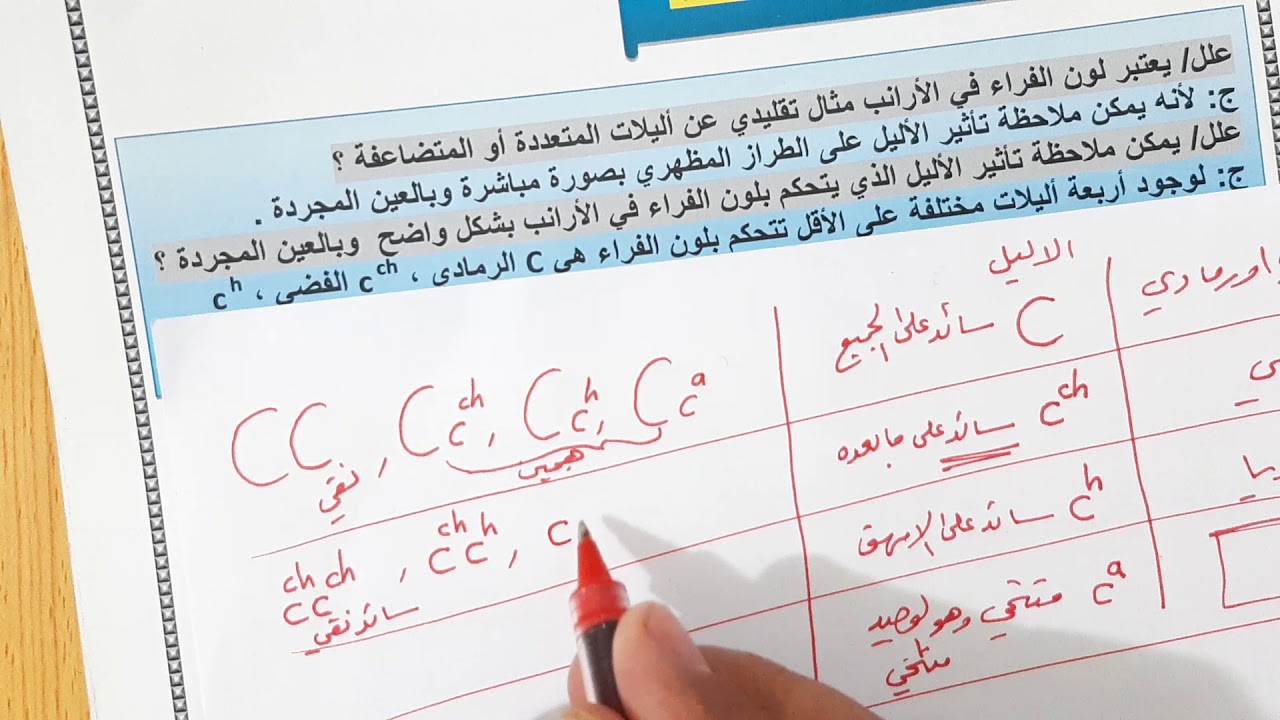 علل/ يعتبر لون الفراء في الأرانب مثال تقليدي عن أليلات المتعددة أو المتضاعفة ؟
ج: لأنه يمكن ملاحظة تأثير الأليل على الطراز المظهري بصورة مباشرة وبالعين المجردة .
علل/ يمكن ملاحظة تأثير الأليل الذي يتحكم بلون الفراء في الأرانب بشكل واضح وبالعين المجردة ؟
ج: لوجود أربعة أليلات مختلفة على الأقل تتحكم بلون الفراء هي C الرمادي ، cᶜʰ الفضي ، cʰ
الاليل
اورمادي
C سائد على الجميع
CC , Ccᶜʰ, Ccʰ, Ccᵃ
نقي
هجين
cᶜʰ سائد على ما بعده
cᶜʰcᶜʰ , cᶜʰcʰ , c
سائد نقي
cʰ سائد على الامهق
cᵃ متنحي وهو لوحيد
متنحي